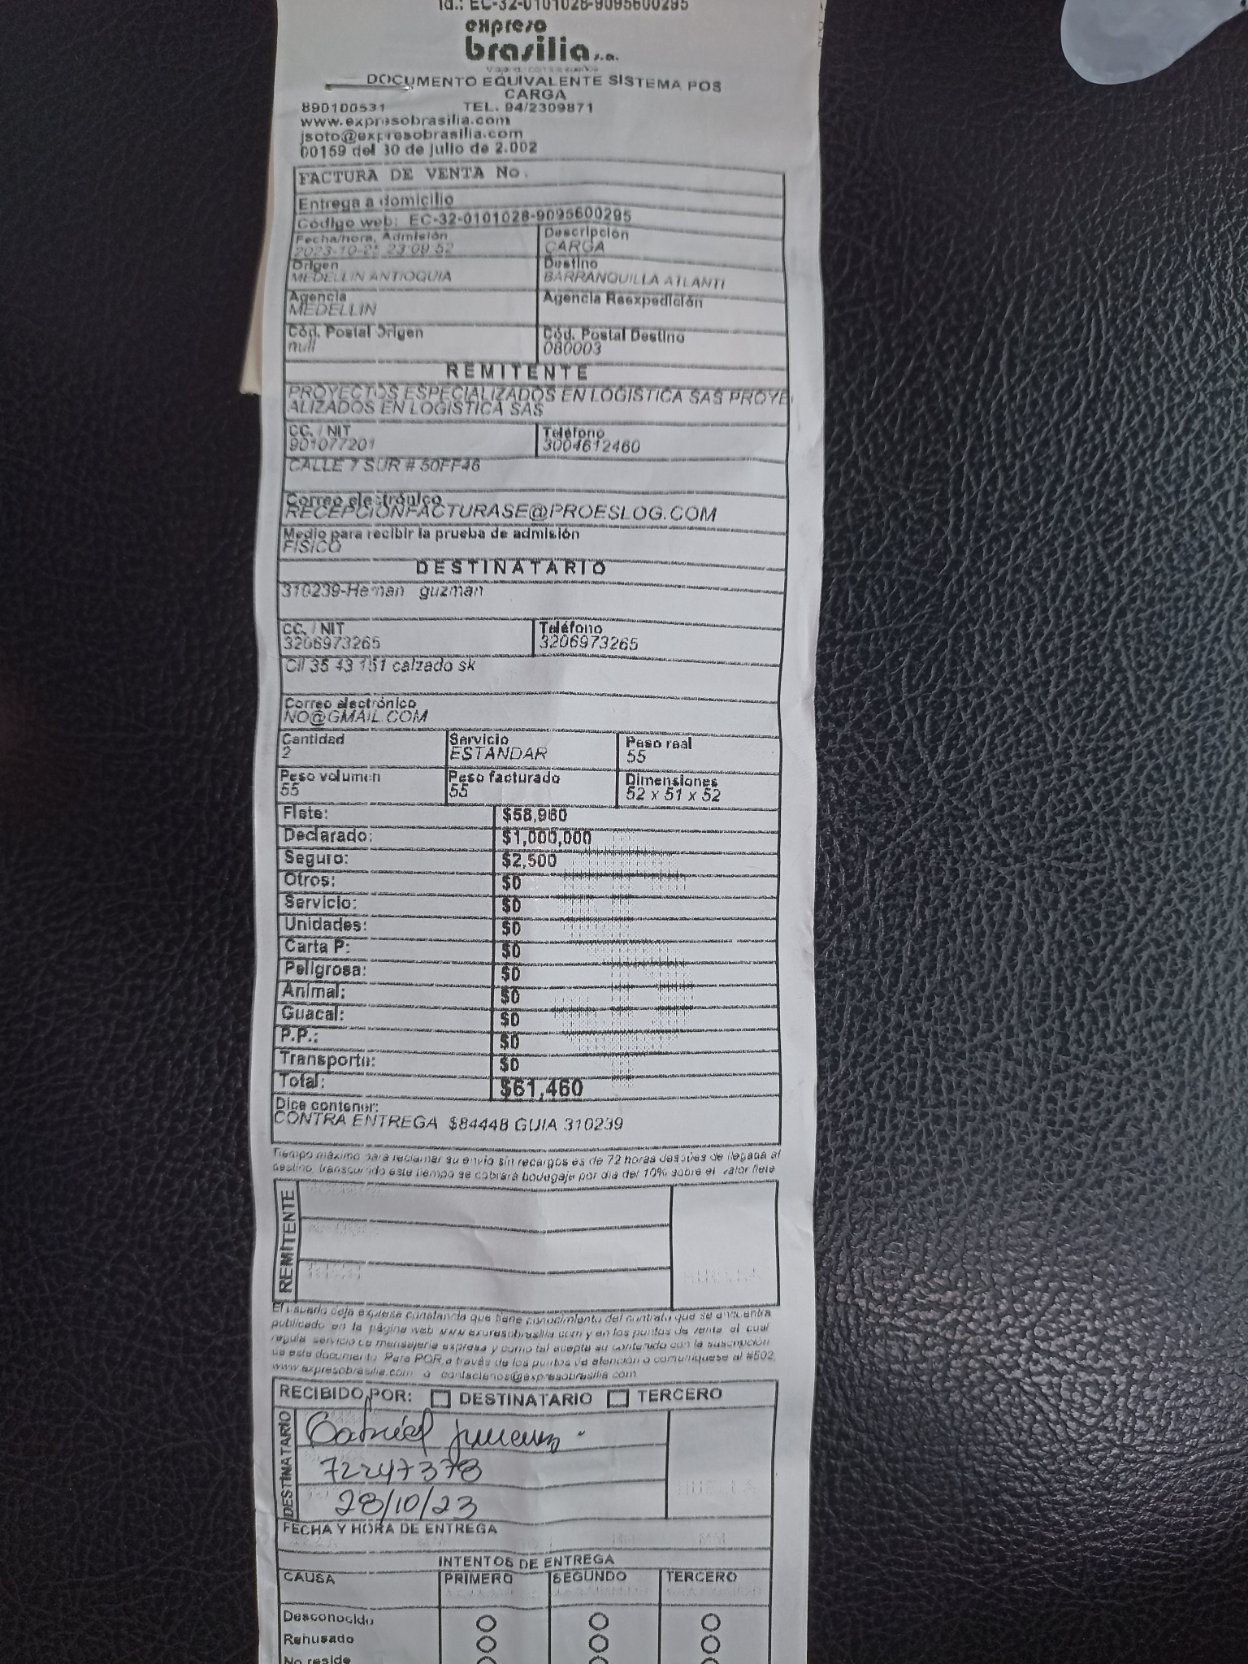 Id.: EC-32-0101028-9095600295
expreso
brasilia s.a.
DOCUMENTO EQUIVALENTE SISTEMA POS
CARGA
890100531 TEL. 94/2309871
www.expresobrasilia.com
jsoto@expresobrasilia.com
00159 del 30 de julio de 2.002
FACTURA DE VENTA No.
Entrega a domicilio
Código web: EC-32-0101028-9095600295
Fecha/hora, Admisión Descripción
23:09:52 CARGA
Origen Destino
MEDELLIN ANTIOQUIA BARRANQUILLA ATLANTI
Agencia Agencia Reexpedición
MEDELLIN
Cód. Postal Origen Cód. Postal Destino
null 080003
REMITENTE
PROYECTOS ESPECIALIZADOS EN LOGISTICA SAS PROYE
ALIZADOS EN LOGISTICA SAS
CC. / NIT Teléfono
901077201 3004612460
CALLE 7 SUR # 50FF46
Correo electrónico
RECEPCIONFACTURASE@PROESLOG.COM
Medio para recibir la prueba de admisión
FISICO
DESTINATARIO
310239-Hernan guzman
CC. / NIT Teléfono
3206973265 3206973265
Cll 35 43 151 calzado sk
Correo electrónico
NO@GMAIL.COM
Cantidad Servicio Peso real
2 ESTANDAR 55
Peso volumen Peso facturado Dimensiones
55 55 52 x 51 x 52
Flete: $58,960
Declarado: $1,000,000
Seguro: $2,500
Otros: $0
Servicio: $0
Unidades: $0
Carta P: $0
Peligrosa: $0
Animal: $0
Guacal: $0
P.P.: $0
Transporte: $0
Total: $61,460
Dice contener:
CONTRA ENTREGA $84448 GUIA 310239
Tiempo máximo para reclamar su envío sin recargos es de 72 horas después de llegada al
destino, transcurrido este tiempo se cobrará bodegaje por día del 10% sobre el valor flete
REMITENTE
El usuario deja expresa constancia que tiene conocimiento del contrato que se encuentra
publicado en la página web www.expresobrasilia.com y en los puntos de venta el cual
regula servicio de mensajería expresa y como tal acepta su contenido con la suscripción
de este documento. Para PQR a través de los puntos de atención o comuníquese al #502,
www.expresobrasilia.com o contactenos@expresobrasilia.com
RECIBIDO POR: DESTINATARIO TERCERO
DESTINATARIO
Gabriel
72247378
28/10/23
FECHA Y HORA DE ENTREGA
INTENTOS DE ENTREGA
CAUSA PRIMERO SEGUNDO TERCERO
Desconocido
Rehusado
No reside